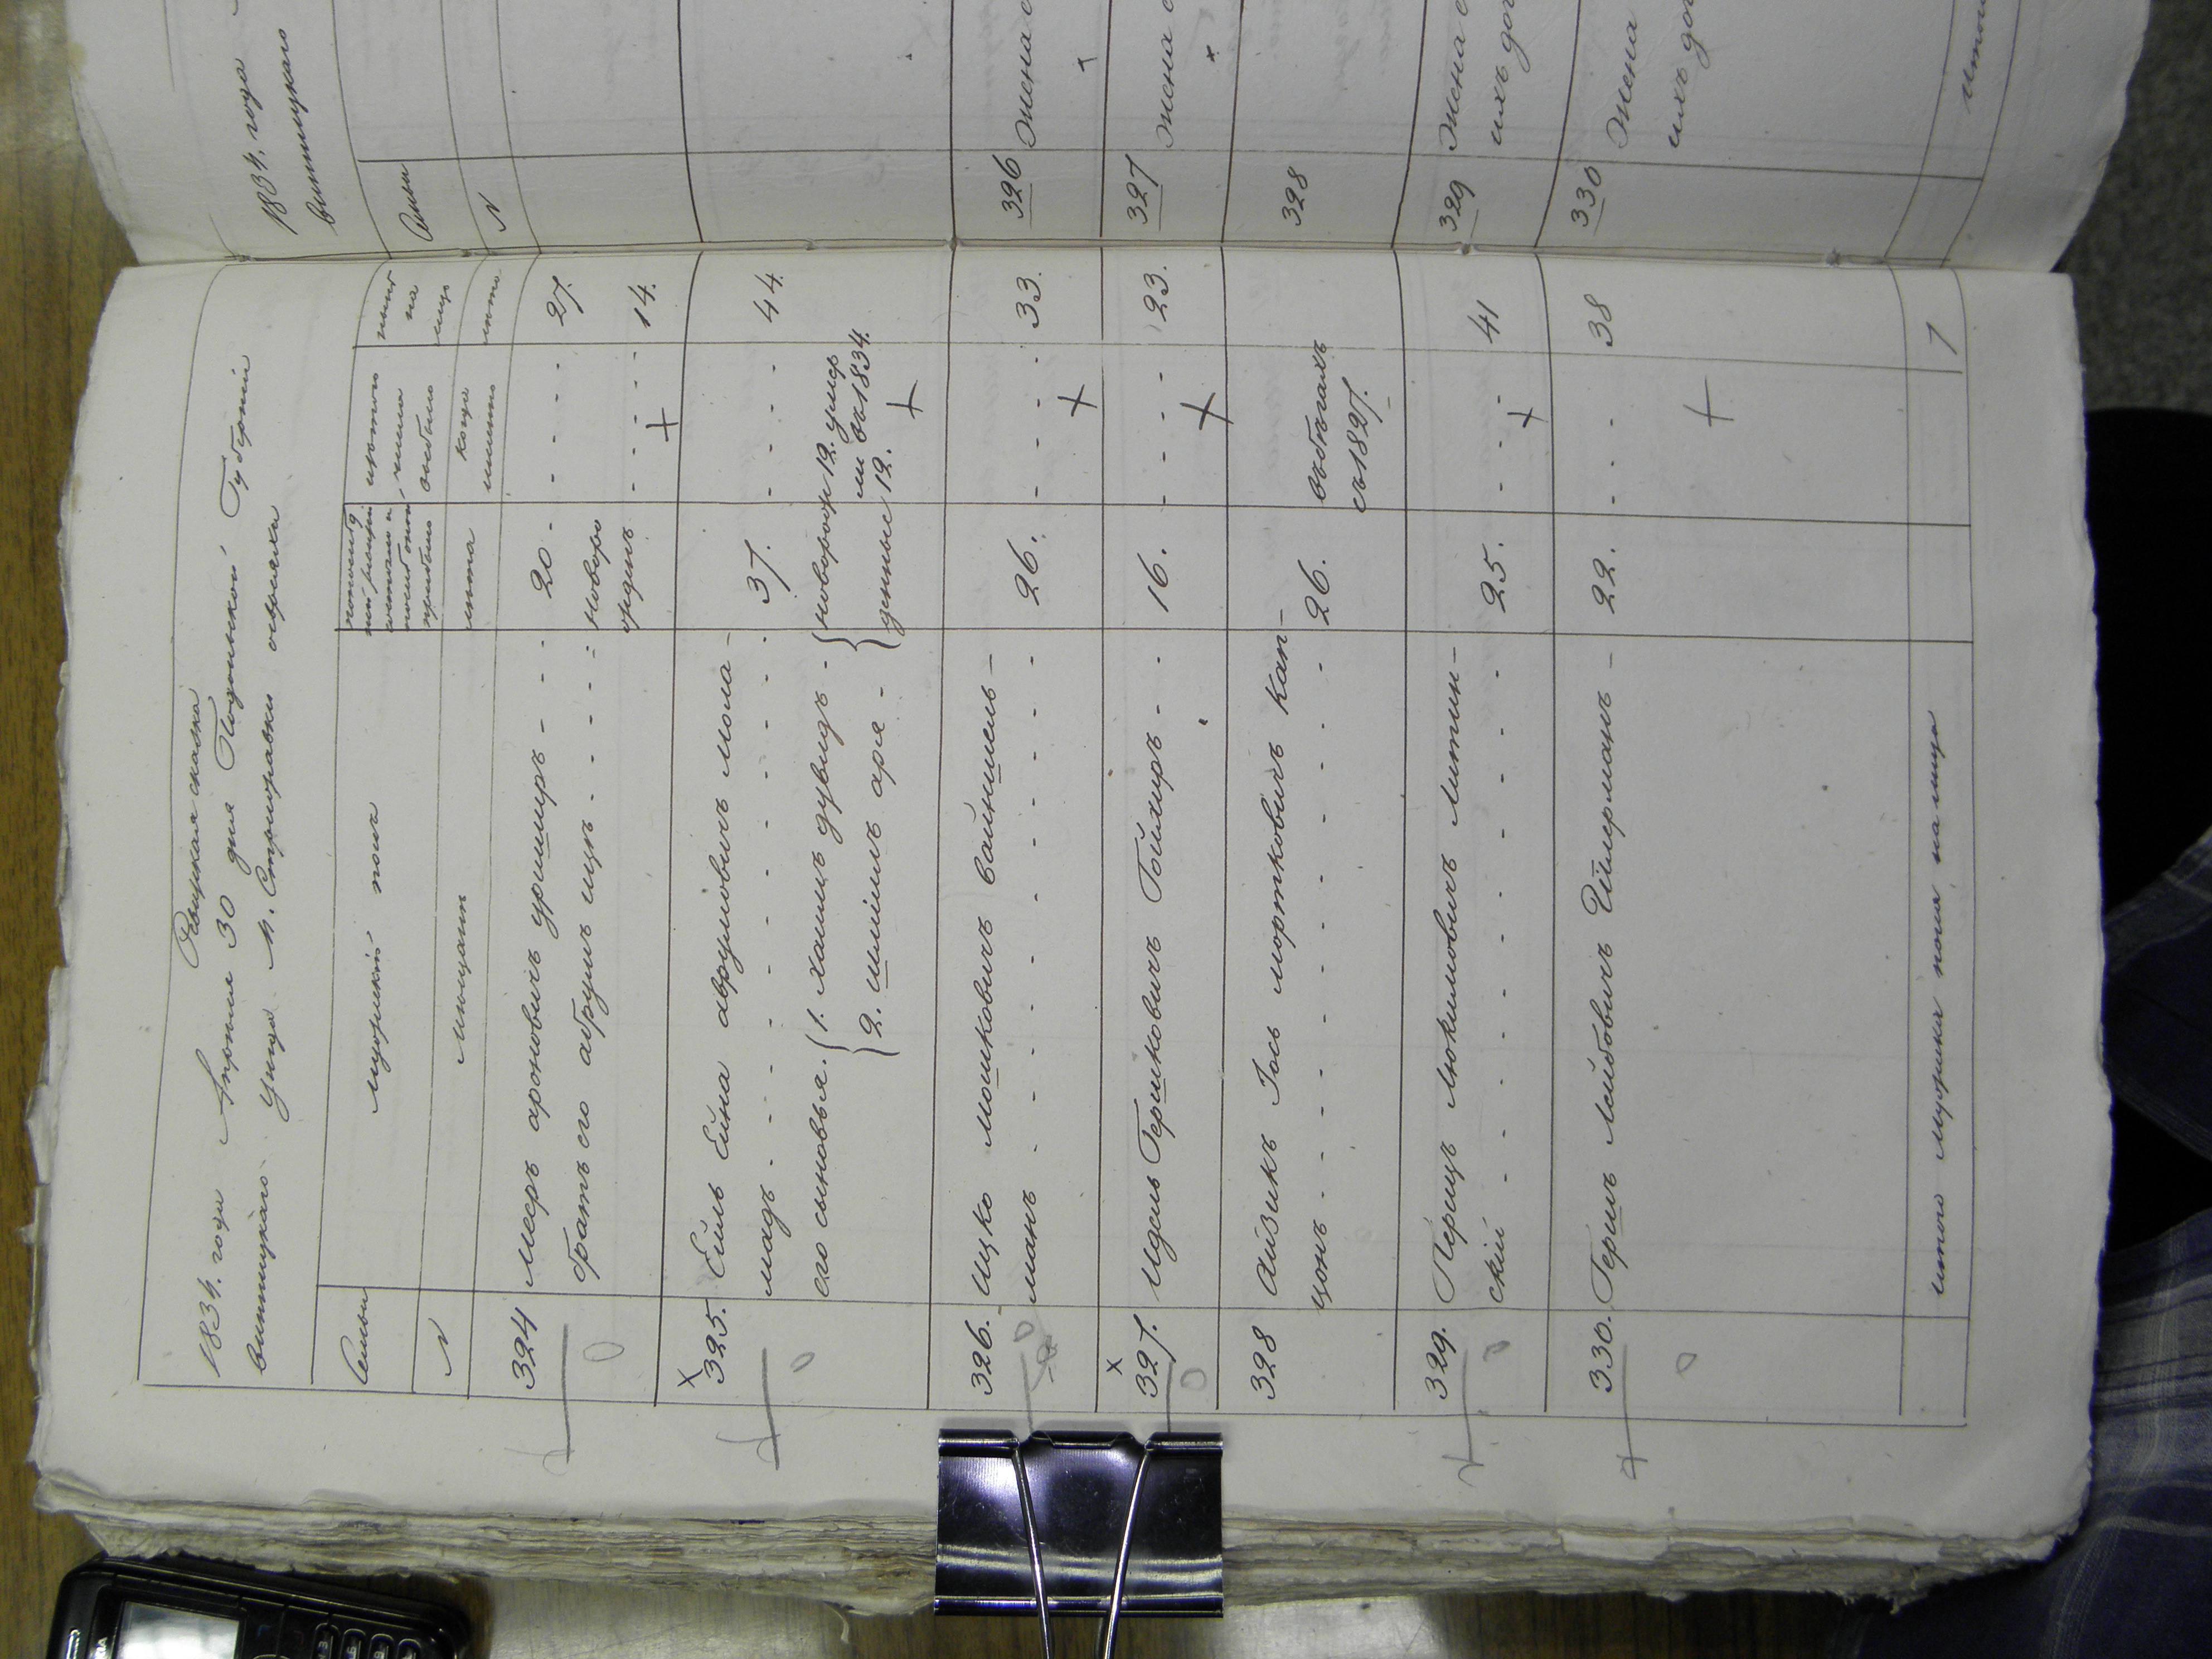 Ревижская сказка
1834. года Апреля 30 дня Подольской Губерніи
Винницкаго уезда м. Стрижавки о евреяхъ
Семьи
мужескій полъ
по последней ревизіи состояло и после оной прибыло
изъ того числа выбыло
ныне на лицо
№
мещане
лета
когда именно
лета
324 Мееръ ароновичъ уриширъ - - 20 - - - - 27.
братъ его абрумъ ицъ - - - - новоро
жденъ - - - - 14.
325. Ейль Ейна аврумовичъ мола-
мадъ - - - - - - - - 37. - - - 44.
его сыновья. 1. Хаимъ дувидъ - новорож 12. умер
ли въ 1834.
2. шлiомъ аря - - денные 12.
326. Ицко мошковичъ вайншель-
манъ - - - - - - - - 26. - - - 33.
327. Идель Гершковичъ Гойхиръ - - 16. - - - 23.
328 Айзикъ Іось мортковичъ кап-
цонъ - - - - - - - - 26. въ бегахъ
съ 1827.
329. Перецъ Люкимовичъ литин-
скій - - - - - - - - 25. - - - 41
330. Гершъ Лейбовичъ Уйлерманъ - 22. - - - 38
итого мужеска пола на лицо 7
1834. года
винницкаго
Семьи
№
326 Жена
327 жена
328
329 Жена
ихъ доч
330 Жена
ихъ до
итого